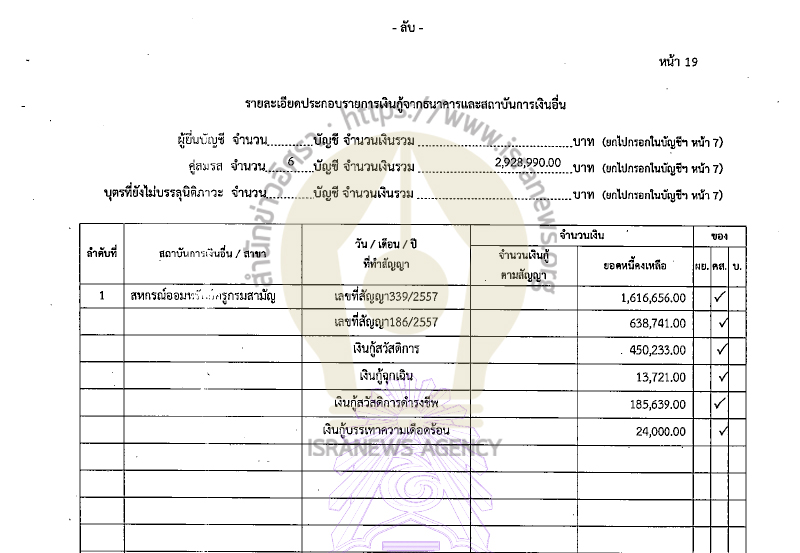 - ลับ -
หน้า 19
รายละเอียดประกอบรายการเงินกู้จากธนาคารและสถาบันการเงินอื่น
ผู้ยื่นบัญชี จำนวน............บัญชี จำนวนเงินรวม ........................................บาท (ยกไปกรอกในบัญชีฯ หน้า 7)
คู่สมรส จำนวน.....6.....บัญชี จำนวนเงินรวม ....................2,928,990.00....บาท (ยกไปกรอกในบัญชีฯ หน้า 7)
บุตรที่ยังไม่บรรลุนิติภาวะ จำนวน............บัญชี จำนวนเงินรวม ........................................บาท (ยกไปกรอกในบัญชีฯ หน้า 7)
ลำดับที่ สถาบันการเงินอื่น / สาขา วัน / เดือน / ปี ที่ทำสัญญา จำนวนเงิน ของ
จำนวนเงินกู้ ตามสัญญา ยอดหนี้คงเหลือ ผย. คส. บ.
1 สหกรณ์ออมทรัพย์ครูกรมสามัญ เลขที่สัญญา339/2557 1,616,656.00 ✓
เลขที่สัญญา186/2557 638,741.00 ✓
เงินกู้สวัสดิการ 450,233.00 ✓
เงินกู้ฉุกเฉิน 13,721.00 ✓
เงินกู้สวัสดิการดำรงชีพ 185,639.00 ✓
เงินกู้บรรเทาความเดือดร้อน 24,000.00 ✓
สำนักข่าวอิศรา : https://www.isranews.org
ISRANEWS AGENCY